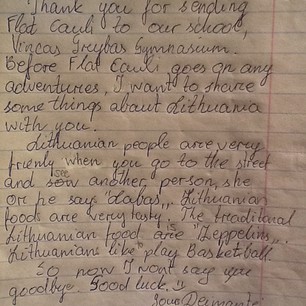 Thank you for sending
Flat Cauli to our school,
Vincas Grybas Gymnasium.
Before Flat Cauli goes on any
adventures, I want to share
some things about Lithuania
with you.
Lithuanian people are very
frienly when you go to the street
and see another person, she
or he say "Labas". Lithuanian
food are very tasty. The traditional
Lithuanian food is "Zeppelins".
Lithuanians like play Basketball.
So now I wont say you
goodbye. Good luck.
Deimante